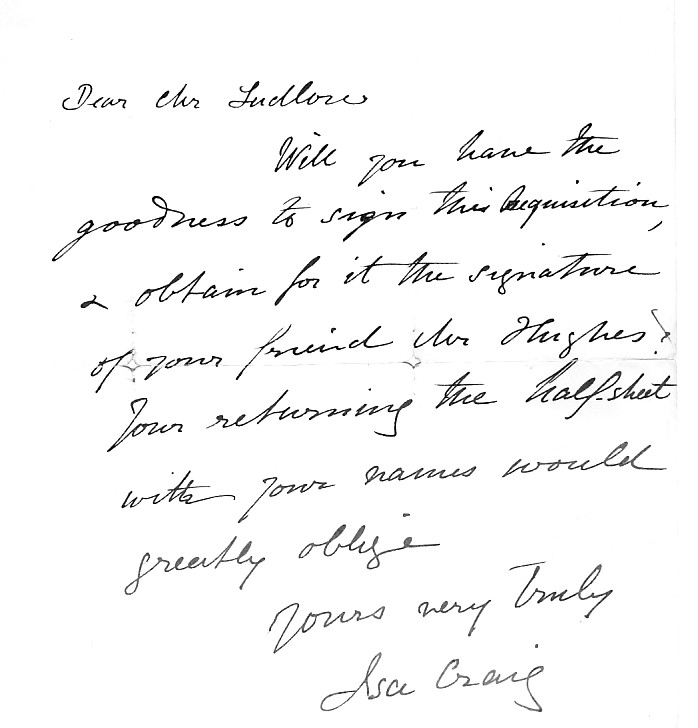 Dear Mr Ludlow
Will you have the
goodness to sign this Requisition,
& obtain for it the signature
of your friend Mr Hughes?
Your returning the half-sheet
with your names would
greatly oblige
Yours very Truly
Isa Craig